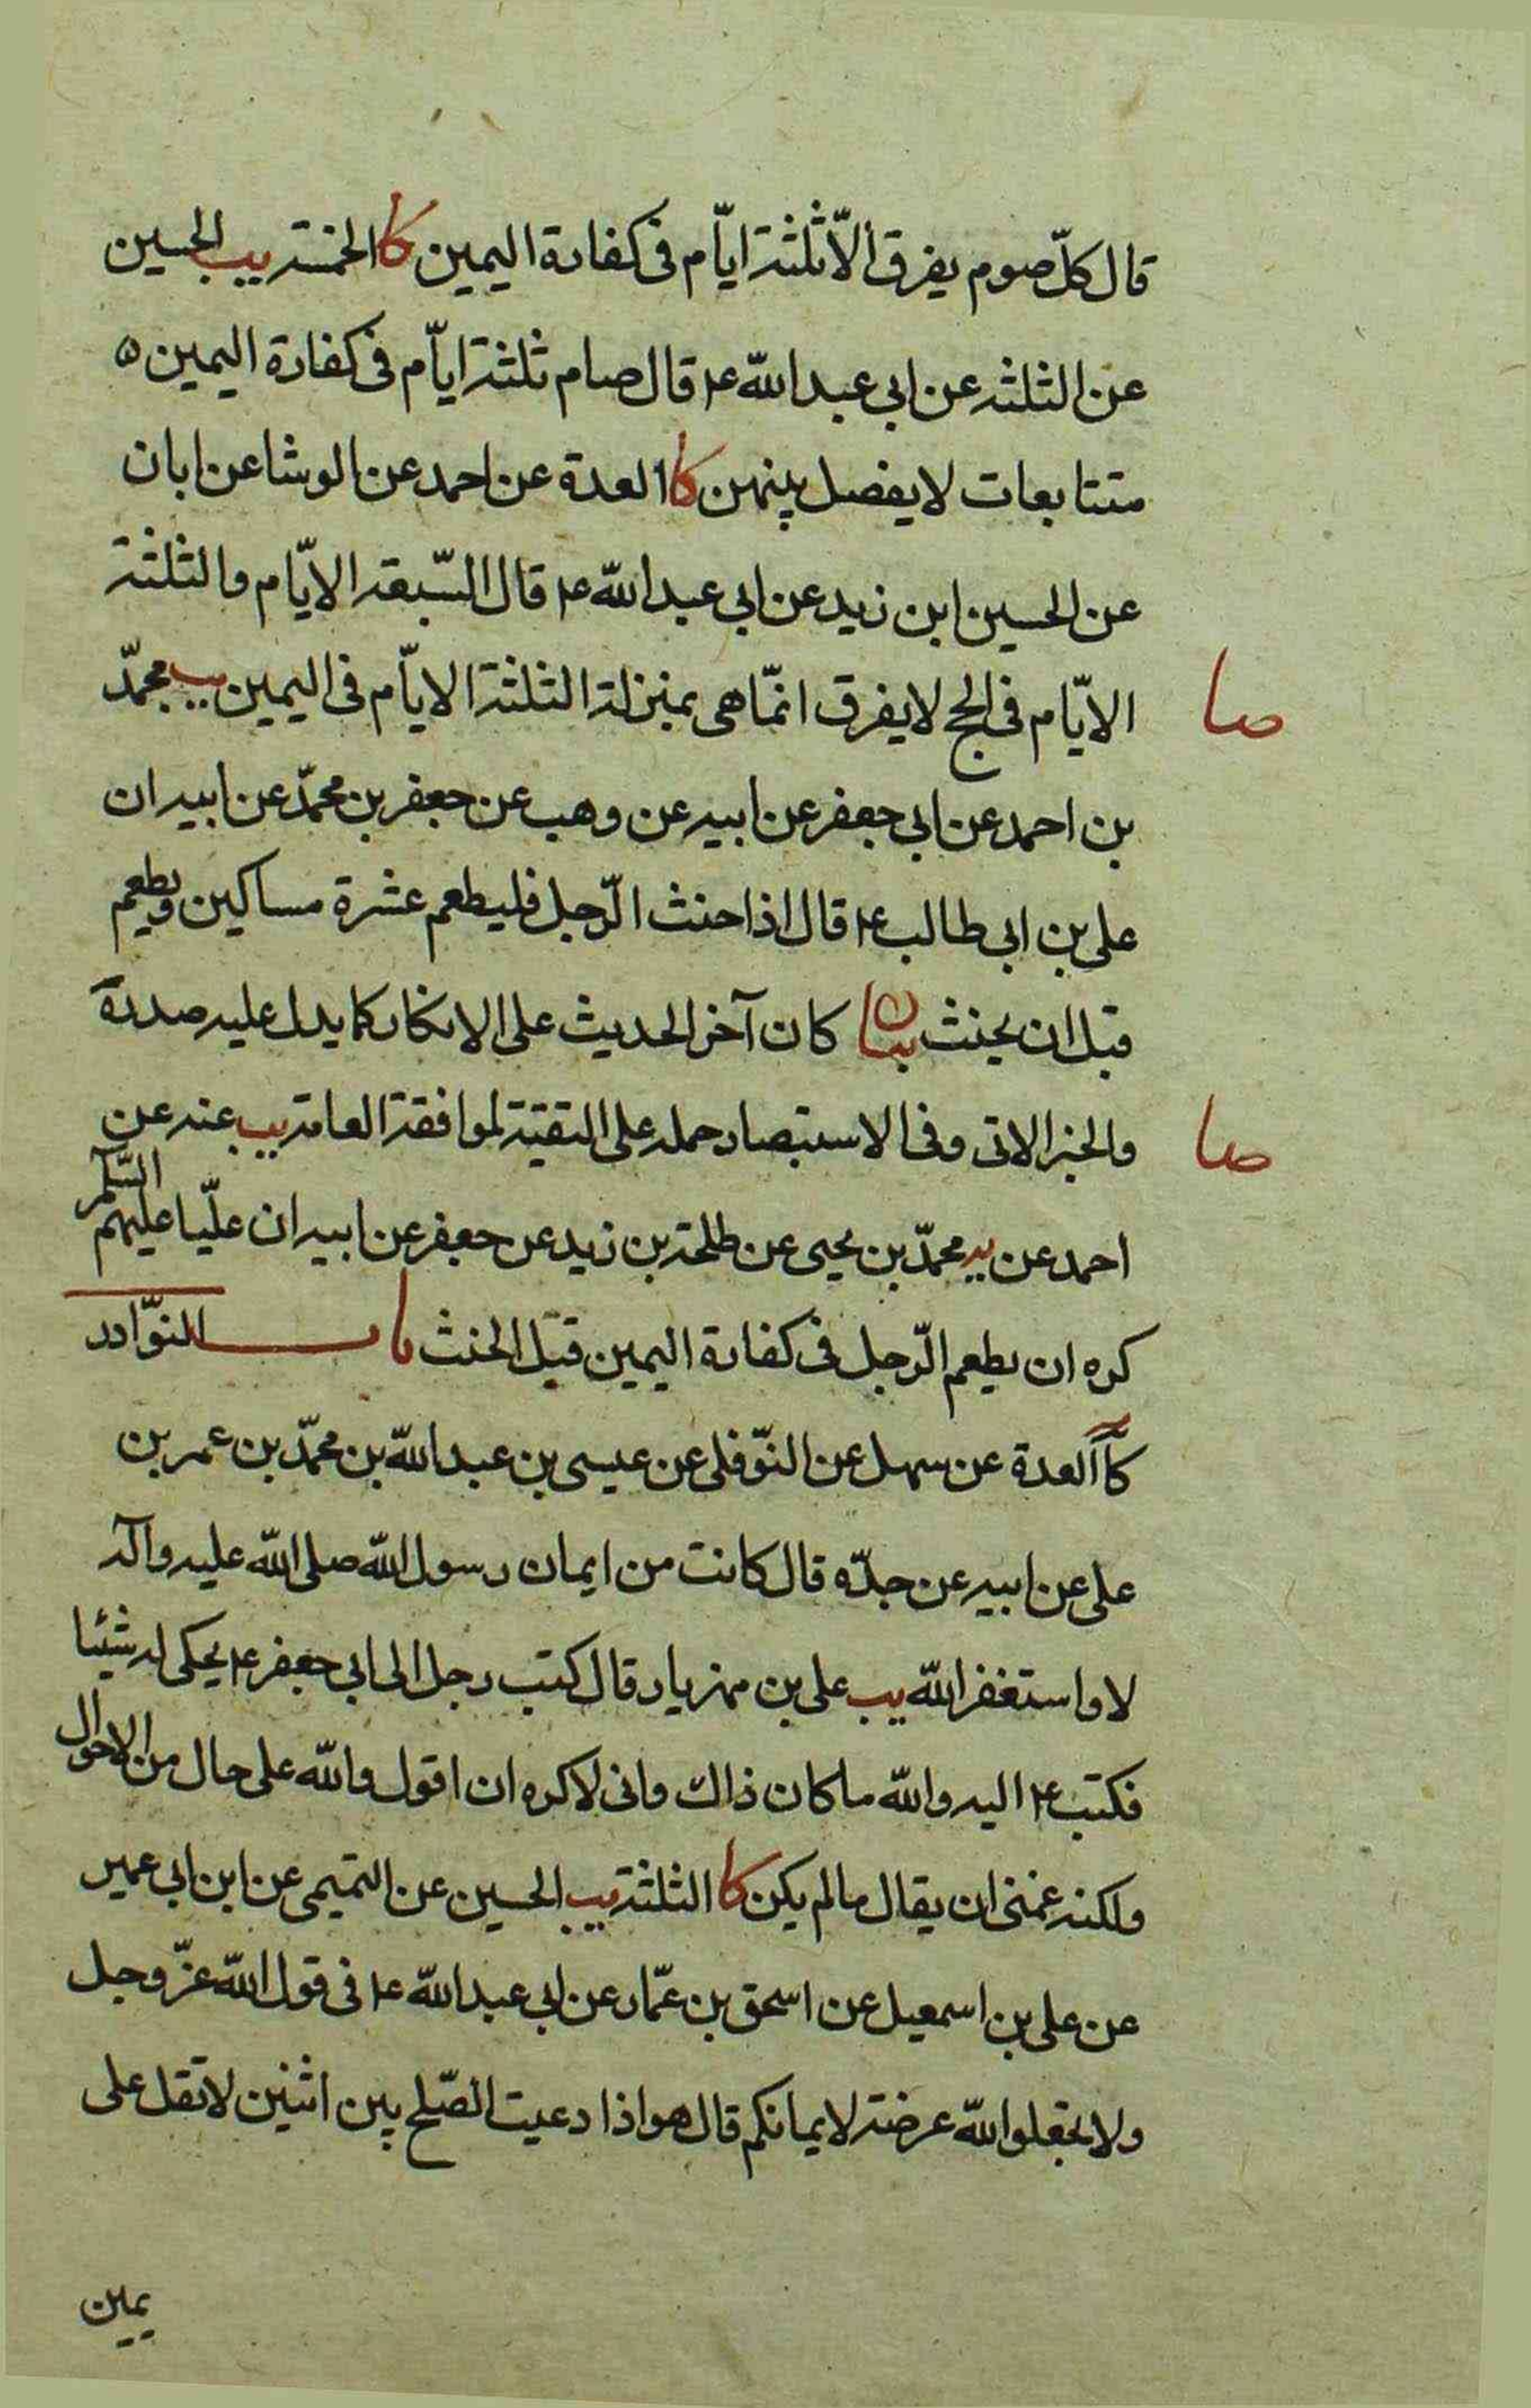 قال كلّ صوم يفرق الّا ثلثة ايّام فى كفارة اليمين كا الخمسة يب الحسين
عن الثلثه عن ابي عبد اللّه ع قال صيام ثلثة ايّام فى كفارة اليمين ٥
متتابعات لا يفصل بينهن كا العدة عن احمد عن الوشا عن ابان
عن الحسين ابن زيد عن ابي عبد اللّه ع قال السّبعة الايّام والثلثة
الايّام فى الحج لا يفرق انمّا هى بمنزلة الثلثة الايّام فى اليمين يب محمّد
صا
بن احمد عن ابي جعفر عن ابيه عن وهب عن جعفر بن محمّد عن ابيه ان
على بن ابي طالب ع قال اذا حنث الرّجل فليطعم عشرة مساكين ويطعم
قبل ان يحنث بيان كان آخر الحديث على الانكار كما يدل عليه صدره
والخبر الاتى وفى الاستبصار حمله على التقية لموافقة العامة يب عنه عن
صا
احمد عن يه محمّد بن يحيى عن طلحة بن زيد عن جعفر عن ابيه ان عليّا عليهم السّلام
كره ان يطعم الرّجل فى كفارة اليمين قبل الحنث باب النوّادر
كا العدة عن سهل عن النوّفلى عن عيسى بن عبد اللّه بن محمّد بن عمر بن
على عن ابيه عن جدّه قال كانت من ايمان رسول اللّه صلى اللّه عليه وآله
لا واستغفر اللّه يب على بن مهزيار قال كتب رجل الى ابي جعفر ع يحكى له شيئا
فكتب ع اليه واللّه ما كان ذاك وانى لاكره ان اقول واللّه على حال من الاحوال
ولكنه غمنى ان يقال ما لم يكن كا الثلثة يب الحسين عن التميمى عن ابن ابي عمير
عن على بن اسمعيل عن اسحق بن عمّار عن ابي عبد اللّه ع فى قول اللّه عزّ وجل
ولا تجعلوا اللّه عرضة لايمانكم قال هو اذا دعيت لصّلح بين اثنين لا تقل على
يمين